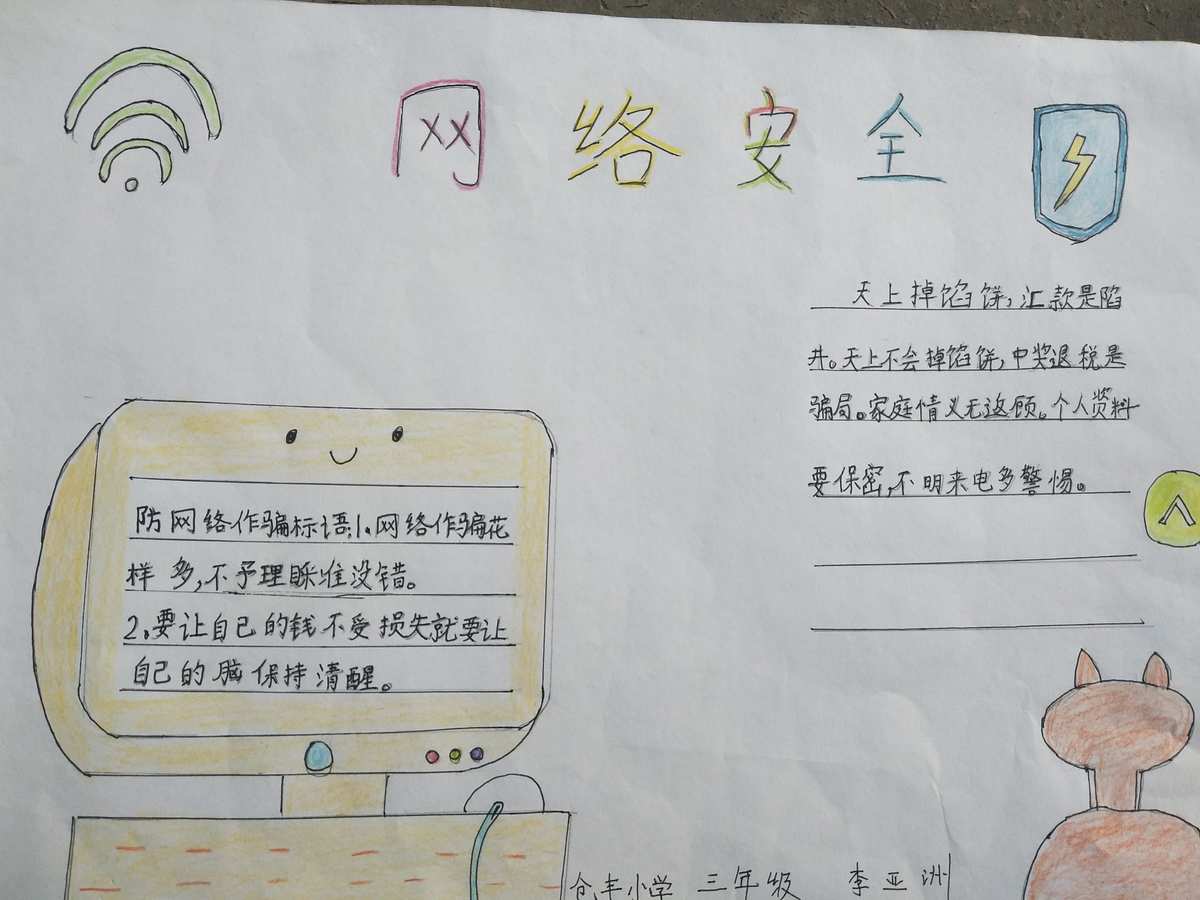 网络安全
天上掉馅饼，汇款是陷
井。天上不会掉馅饼，中奖退税是
骗局。家庭情义无返顾。个人资料
要保密，不明来电多警惕。
防网络作骗标语：1。网络作骗花
样多，不予理睬准没错。
2。要让自己的钱不受损失就要让
自己的脑保持清醒。
仓丰小学 三年级 李亚洲